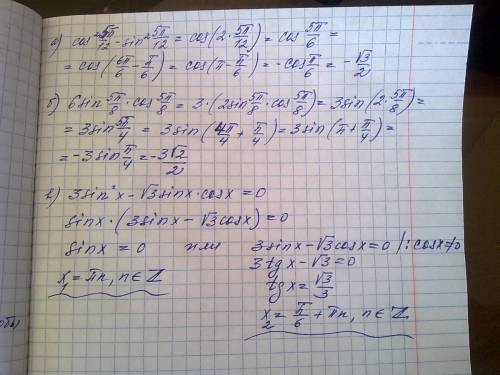 а) cos²5π/12 - sin²5π/12 = cos(2·5π/12) = cos 5π/6 =
= cos(6π/6 - π/6) = cos(π - π/6) = -cos π/6 = -√3/2
б) 6sin 5π/8 · cos 5π/8 = 3·(2sin 5π/8 · cos 5π/8) = 3sin(2·5π/8) =
= 3sin 5π/4 = 3sin(4π/4 + π/4) = 3sin(π + π/4) =
= -3sin π/4 = -3√2/2
в) 3sin²x - √3sinx·cosx = 0
sinx·(3sinx - √3cosx) = 0
sinx = 0 или 3sinx - √3cosx = 0 /: cosx≠0
3tgx - √3 = 0
tgx = √3/3
x₁ = πn, n∈Z
x₂ = π/6 + πn, n∈Z